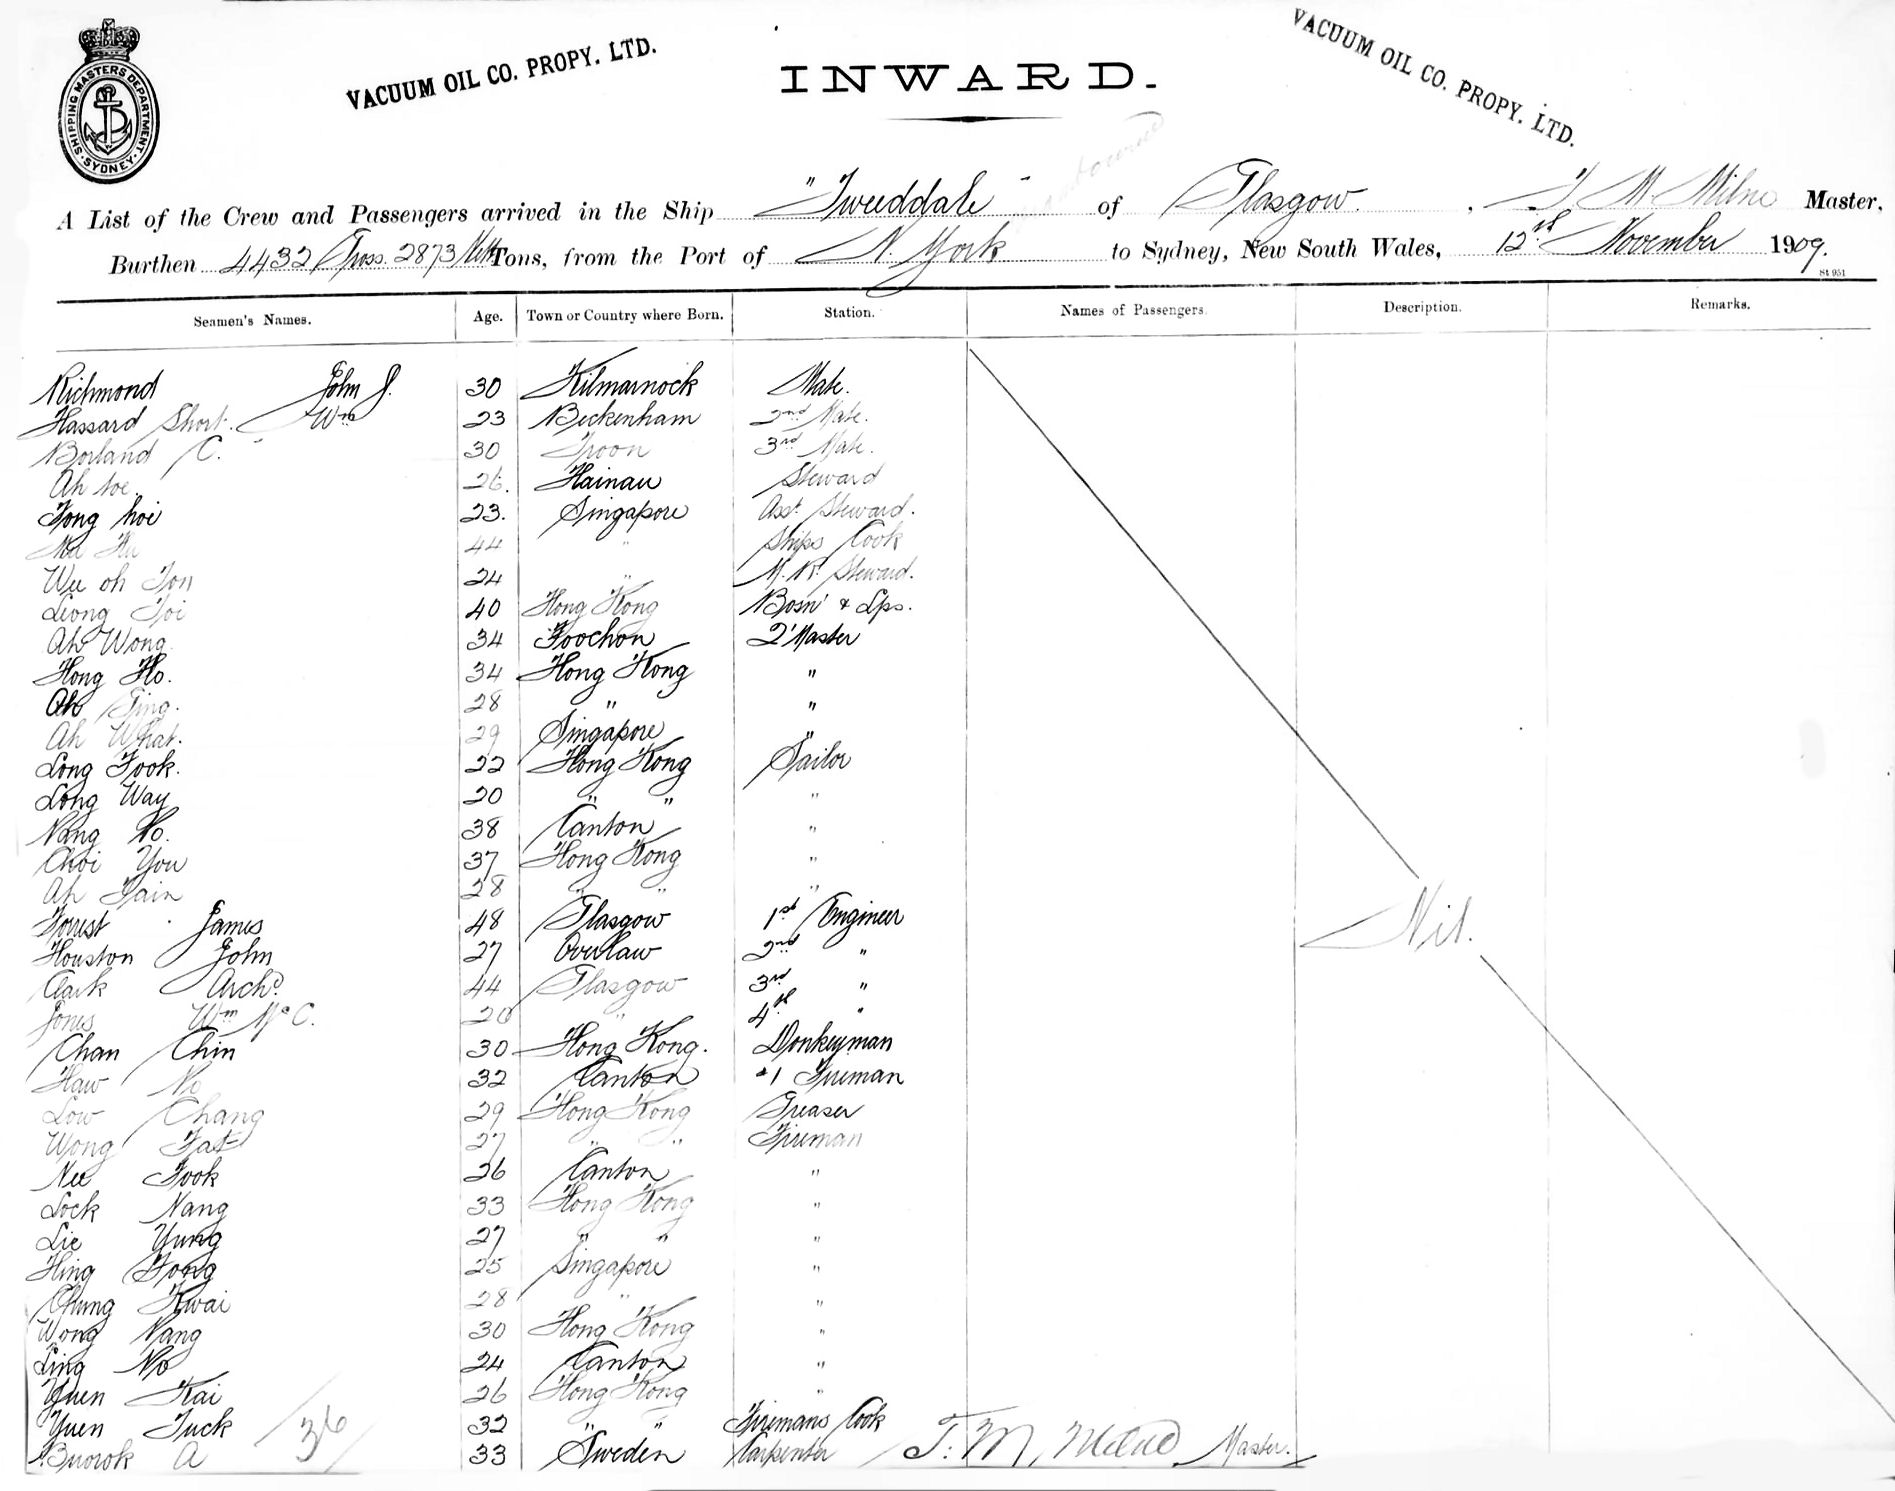 SHIPPING MASTERS DEPARTMENT. SYDNEY
VACUUM OIL CO. PROPY. LTD.
INWARD.
VACUUM OIL CO. PROPY. LTD.
A List of the Crew and Passengers arrived in the Ship "Tweeddale" of Glasgow, T M Milne Master,
Burthen 4432 Gross 2873 Nett Tons, from the Port of N. York to Sydney, New South Wales, 12th November 1909.
St 951
Seamen's Names. Age. Town or Country where Born. Station. Names of Passengers. Description. Remarks.
Richmond John J. 30 Kilmarnock Mate.
Hassard Short. Wm 23 Beckenham 2nd Mate.
Borland C. 30 Troon 3rd Mate.
Ah 26. Hainau Steward
Fong hoi 23. Singapore Asst. Steward.
44 " Ships Cook
Wee oh Fon 24 " M. R. Steward.
Leong Foi 40 Hong Kong Bosn' & Lps.
Ah Wong 34 Foochon 2'Master
Hong Ho. 34 Hong Kong "
Ah Sing. 28 " "
Ah What. 29 Singapore "
Long Fook. 22 Hong Kong Sailor
Long Way 20 " " "
Nang No. 38 Canton "
Choi You 37 Hong Kong "
Ah Fain 28 " " "
Forrest James 48 Glasgow 1st Engineer
Houston John 27 Overlaw 2nd "
Clark Archd. 44 Glasgow 3rd "
Nil.
Jones Wm Mc C. 20 " 4th "
Chan Chin 30 Hong Kong. Donkeyman
Haw No 32 Canton #1 Fireman
Low Chang 29 Hong Kong Greaser
Wong Fat 27 " " Fireman
Nee Fook 26 Canton "
Lock Nang 33 Hong Kong "
Lie Yung 27 " " "
Hing Fong 25 Singapore "
Chung Kwai 28 " "
Wong Nang 30 Hong Kong "
Ling No 24 Canton "
Yuen Kai 26 Hong Kong "
Yuen Tuck 32 " " Firemans Cook
36
A 33 Sweden Carpenter T. M. Milne Master.